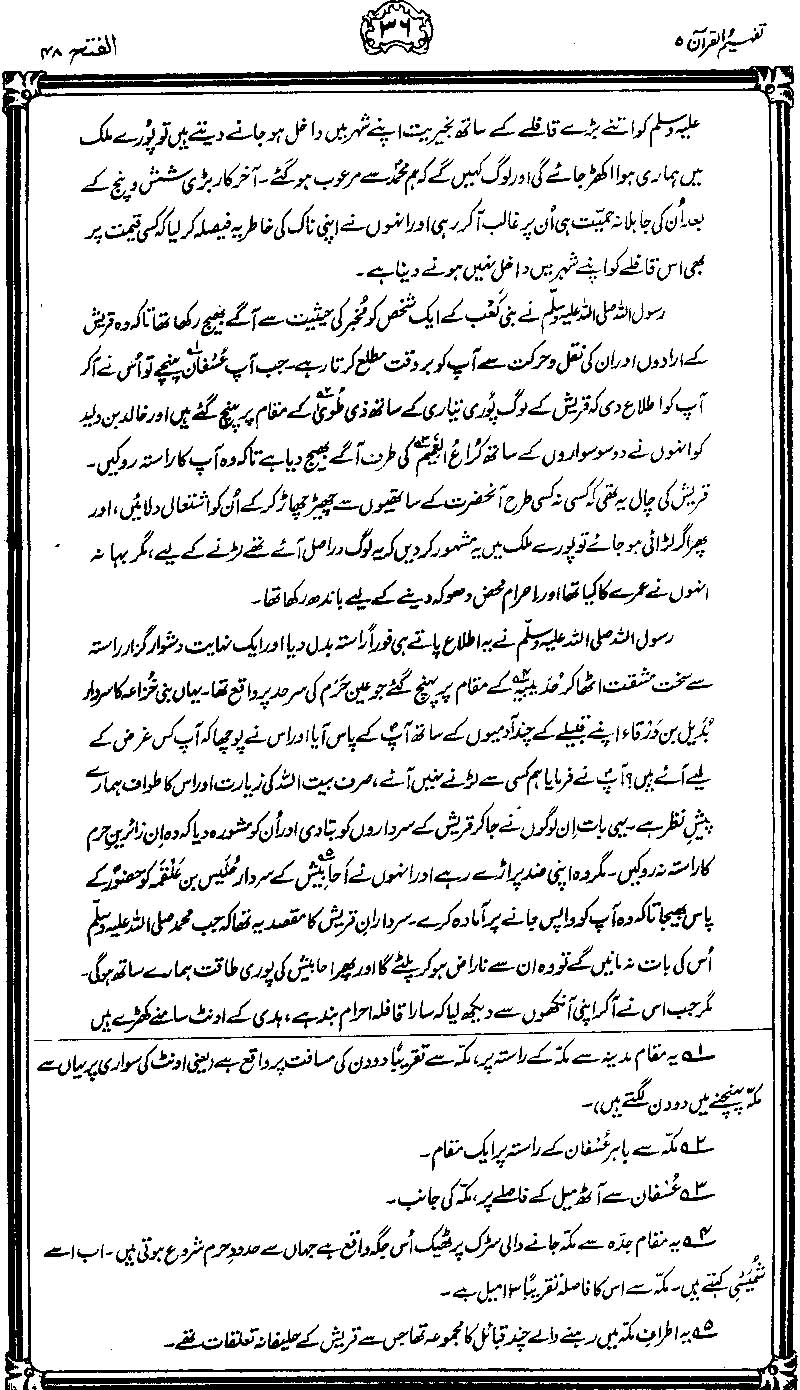 تفہیم القرآن ۵
۳۶
الفتح ۴۸
علیہ وسلم کو اتنے بڑے قافلے کے ساتھ بخیریت اپنے شہر میں داخل ہو جانے دیتے ہیں تو پورے ملک
میں ہماری ہوا اکھڑ جائے گی اور لوگ کہیں گے کہ ہم محمدؐ سے مرعوب ہو گئے۔ آخر کار بڑی شش و پنج کے
بعد اُن کی جاہلانہ حمیّت ہی اُن پر غالب آ کر رہی اور انہوں نے اپنی ناک کی خاطر یہ فیصلہ کر لیا کہ کسی قیمت پر
بھی اس قافلے کو اپنے شہر میں داخل نہیں ہونے دینا ہے۔
رسول اللہ صلی اللہ علیہ وسلّم نے بنی کَعْب کے ایک شخص کو مُخبر کی حیثیت سے آگے بھیج رکھا تھا تاکہ وہ قریش
کے ارادوں اور ان کی نقل و حرکت سے آپ کو بر وقت مطلع کرتا رہے۔ جب آپ عُسْفان۱؎ پہنچے تو اُس نے آ کر
آپ کو اطلاع دی کہ قریش کے لوگ پُوری تیاری کے ساتھ ذی طُویٰ۲؎ کے مقام پر پہنچ گئے ہیں اور خالد بن ولید
کو انہوں نے دو سو سواروں کے ساتھ کُراعُ الغَمِیْم۳؎ کی طرف آگے بھیج دیا ہے تاکہ وہ آپ کا راستہ روکیں۔
قریش کی چال یہ تھی کہ کسی نہ کسی طرح آنحضرت کے ساتھیوں سے چھیڑ چھاڑ کر کے اُن کو اشتعالی دلائیں، اور
پھر اگر لڑائی ہو جائے تو پورے ملک میں یہ مشہور کر دیں کہ یہ لوگ دراصل آئے تھے لڑنے کے لیے، مگر بہانہ
انہوں نے عمرے کا کیا تھا اور احرام محض دھوکہ دینے کے لیے باندھ رکھا تھا۔
رسول اللہ صلی اللہ علیہ وسلّم نے یہ اطلاع پاتے ہی فوراً راستہ بدل دیا اور ایک نہایت دشوار گزار راستہ
سے سخت مشقت اٹھا کر حُدَیبیہ۴؎ کے مقام پر پہنچ گئے جو عین حَرَم کی سرحد پر واقع تھا۔ یہاں بنی خُزاعہ کا سردار
بُدَیل بن وَرْقاء اپنے قبیلے کے چند آدمیوں کے ساتھ آپؐ کے پاس آیا اور اس نے پوچھا کہ آپ کس غرض کے
لیے آئے ہیں؟ آپؐ نے فرمایا ہم کسی سے لڑنے نہیں آئے، صرف بیت اللہ کی زیارت اور اس کا طواف ہمارے
پیشِ نظر ہے۔ یہی بات اِن لوگوں نے جا کر قریش کے سرداروں کو بتا دی اور اُن کو مشورہ دیا کہ وہ اِن زائرینِ حرم
کا راستہ نہ روکیں۔ مگر وہ اپنی ضد پر اڑے رہے اور انہوں نے اَحابِیْش۵؎ کے سردار حُلَیس بن عَلْقَمہ کو حضورؐ کے
پاس بھیجا تاکہ وہ آپ کو واپس جانے پر آمادہ کرے۔ سردارانِ قریش کا مقصد یہ تھا کہ جب محمد صلی اللہ علیہ وسلّم
اُس کی بات نہ مانیں گے تو وہ ان سے ناراض ہو کر پلٹے گا اور پھر احابیش کی پوری طاقت ہمارے ساتھ ہوگی۔
مگر جب اس نے آ کر اپنی آنکھوں سے دیکھ لیا کہ سارا قافلہ احرام بند ہے، ہَدی کے اونٹ سامنے کھڑے ہیں
۱؎ یہ مقام مدینہ سے مکّہ کے راستہ پر، مکّہ سے تقریباً دو دن کی مسافت پر واقع ہے (یعنی اونٹ کی سواری پر یہاں سے
مکّہ پہنچنے میں دو دن لگتے ہیں)۔
۲؎ مکّہ سے باہر عُسْفان کے راستہ پر ایک مقام۔
۳؎ عُسْفان سے آٹھ میل کے فاصلے پر، مکّہ کی جانب۔
۴؎ یہ مقام جدّہ سے مکّہ جانے والی سڑک پر ٹھیک اُس جگہ واقع ہے جہاں سے حدودِ حرم شروع ہوتی ہیں۔ اب اسے
شُمَیْسی کہتے ہیں۔ مکّہ سے اس کا فاصلہ تقریباً ۱۳ میل ہے۔
۵؎ یہ اطرافِ مکّہ میں رہنے والے چند قبائل کا مجموعہ تھا جس سے قریش کے حلیفانہ تعلقات تھے۔